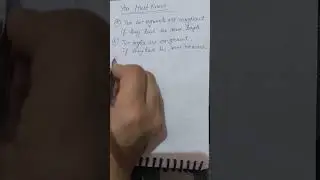 You Must Know
(a) Two line segments are congruent
if they have the same length
(b) Two angles are congruent
if they have the same measure